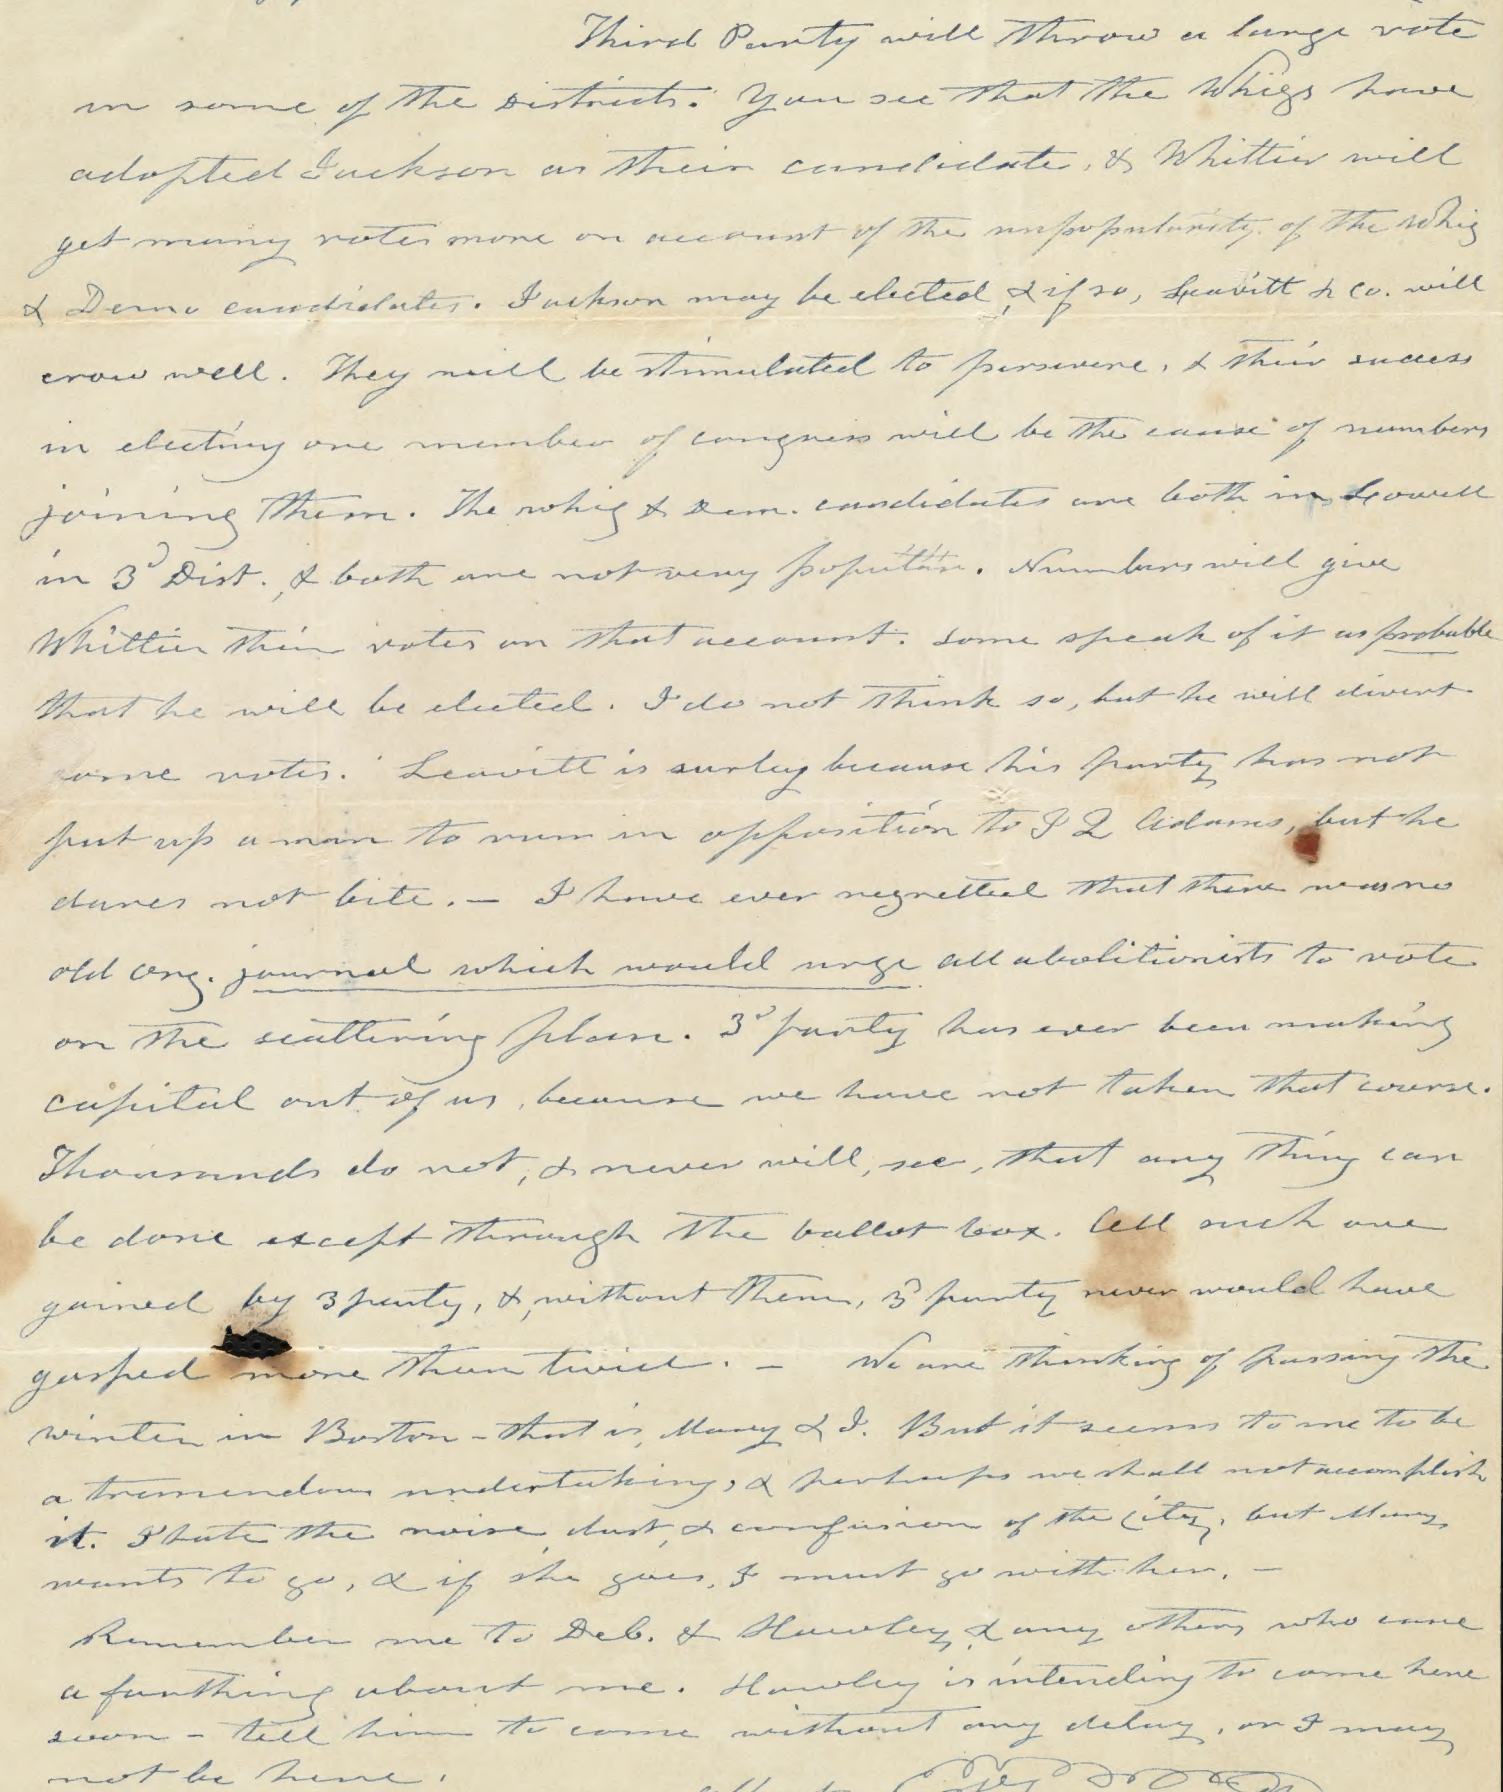 Third Party will throw a large vote
in some of the districts. You see that the Whigs have
adopted Jackson as their candidate, & Whittier will
get many votes more on account of the unpopularity of the Whig
& Demo candidates. Jackson may be elected, & if so, Leavitt & Co. will
crow well. They will be stimulated to persevere, & their success
in electing one member of congress will be the cause of numbers
joining them. The whig & dem. candidates are both in Lowell
in 3d Dist., & both are not very popular. Numbers will give
Whittier their votes on that account. Some speak of it as probable
that he will be elected. I do not think so, but he will divert
some votes. Leavitt is surley because his party has not
put up a man to run in opposition to J Q Adams, but he
dares not bite. — I have ever regretted that there was no
old org. journal which would urge all abolitionists to vote
on the scattering plan. 3d party has ever been making
capital out of us, because we have not taken that course.
Thousands do not, & never will, see, that any thing can
be done except through the ballot box. All such are
gained by 3 party, &, without them, 3d party never would have
gasped more than twice. — We are thinking of passing the
winter in Boston - that is, Mary & I. But it seems to me to be
a tremendous undertaking, & perhaps we shall not accomplish
it. I hate the noise, dust, & confusion of the city, but Mary
wants to go, & if she goes, I must go with her. —
Remember me to Deb. & Hawley, & any others who care
a farthing about me. Hawley is intending to come here
soon - tell him to come without any delay, or I may
not be here.